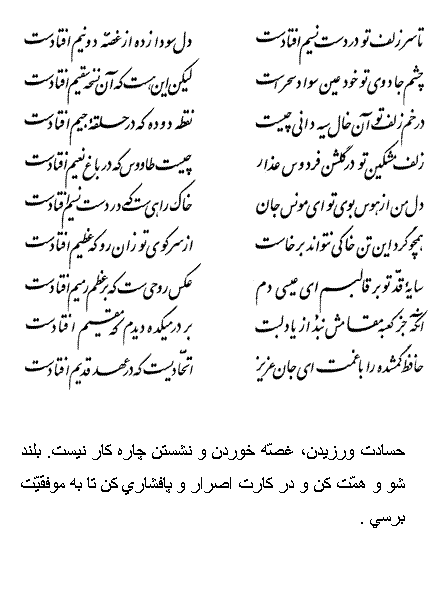 تا سر زلف تو در دست نسیم افتادست دل سودا زده از غصّه دو نیم افتادست
چشم جادوی تو خود عین سواد سحر است لیکن این هست که آن نسخه سقیم افتادست
در خم زلف تو آن خال سیه دانی چیست نقطه دوده که در حلقهٔ جیم افتادست
زلف مشکین تو در گلشن فردوس عذار چیست طاووس که در باغ نعیم افتادست
دل من از هوس بوی تو ای مونس جان خاک راهی ست که در دست نسیم افتادست
همچو گرد این تن خاکی نتواند برخاست از سر کوی تو زان رو که عظیم افتادست
سایهٔ قدّ تو بر قالبم ای عیسی دم عکس روحی ست که بر عظم رمیم افتادست
آنکه جز کعبه مقامش نبُد از یاد لبت بر در میکده دیدم که مقیم افتادست
حافظ گمشده را با غمت ای جان عزیز اتّحادیست که در عهد قدیم افتادست
حسادت ورزیدن، غصّه خوردن و نشستن چاره کار نیست. بلند
شو و همّت کن و در کارت اصرار و پافشاري کن تا به موفقیّت
برسي .